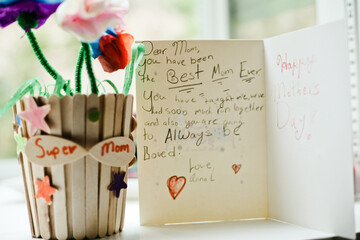 Super Mom
Dear Mom,
You have been
the Best Mom Ever
You have taught me,
had sooo much fun together
and also you are going
to, Always be
loved.
Love,
Happy
Mothers
Day